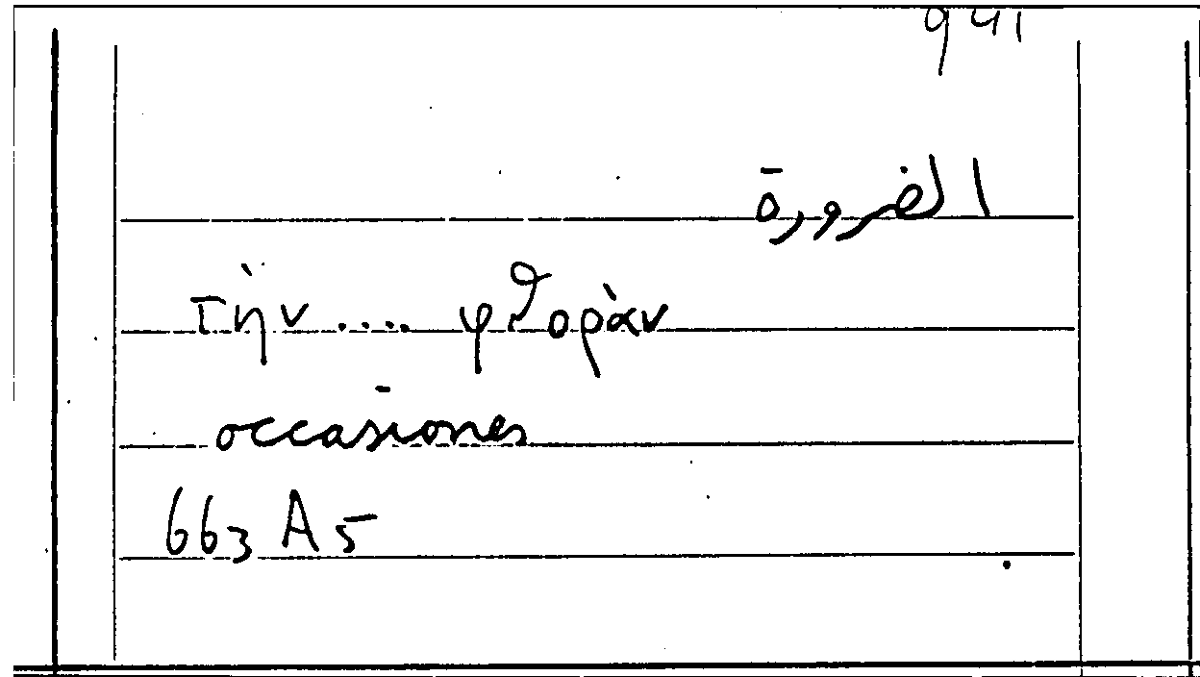 941
الضرورة
τὴν .... φθορὰν
occasiones
663 A 5